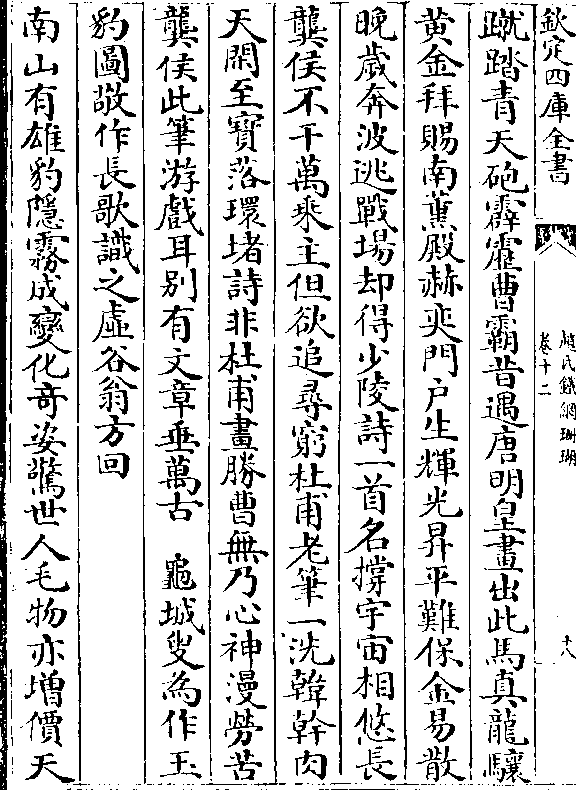 欽定四庫全書
趙氏鐵網珊瑚
卷十二
十八
蹴踏青天砲霹靂曹霸昔遇唐明皇畫出此馬真龍驤
黄金拜賜南薰殿赫奕門戸生輝光昇平難保金易散
晩歳奔波逃戰場却得少陵詩一首名撐宇宙相悠長
龔侯不干萬乘主但欲追尋窮杜甫老筆一洗韓幹肉
天閑至寳落環堵詩非杜甫畫勝曹無乃心神漫勞苦
龔侯此筆游戲耳别有文章垂萬古　龜城叟為作玉
豹圖敬作長歌識之虚谷翁方回
南山有雄豹隱霧成變化竒姿驚世人毛物亦增價天